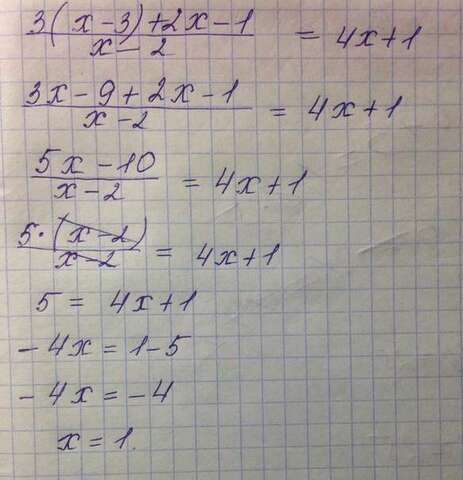 3(x-3)+2x-1/x-2 = 4x+1
3x-9+2x-1/x-2 = 4x+1
5x-10/x-2 = 4x+1
5·(x-2)/x-2 = 4x+1
5 = 4x+1
-4x = 1-5
-4x = -4
x = 1.